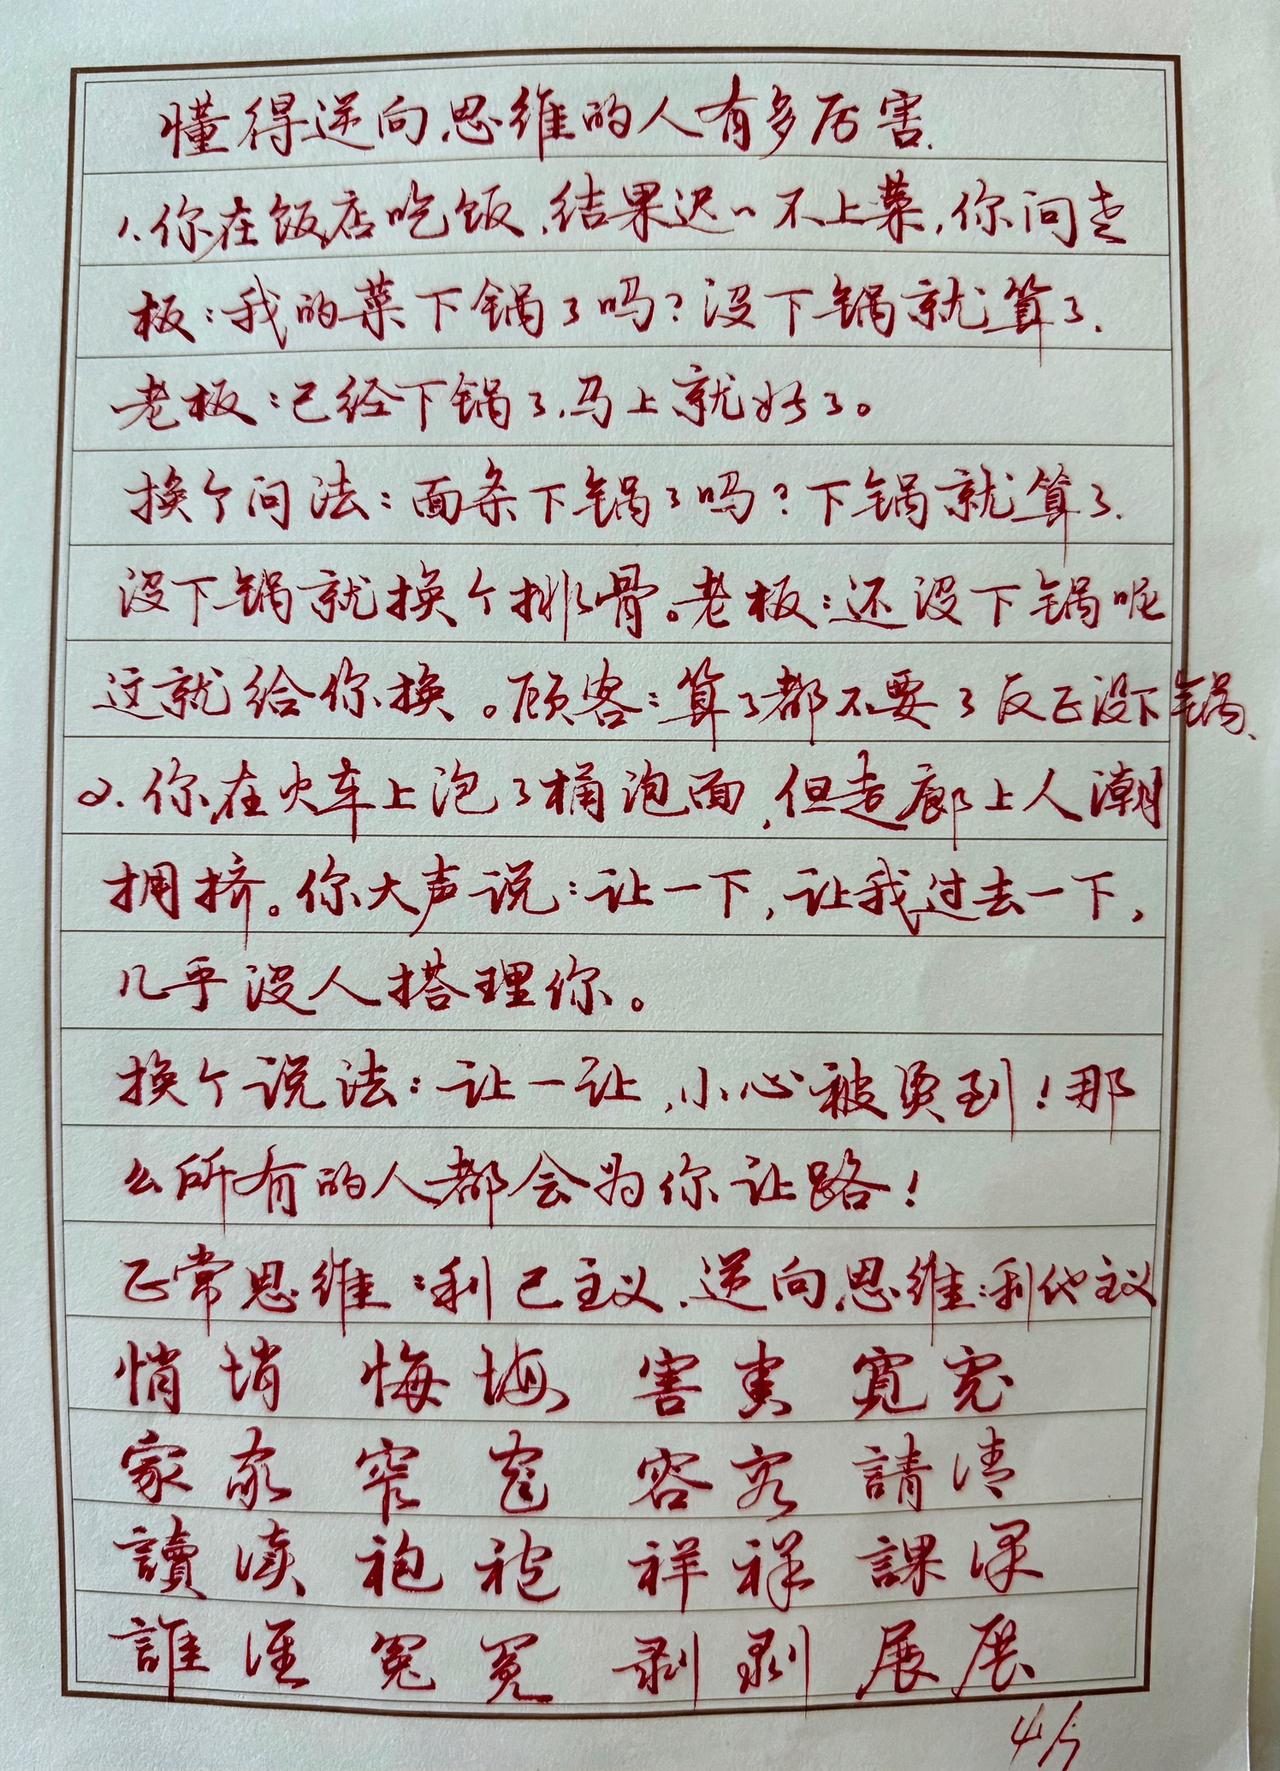 懂得逆向思维的人有多厉害.
1.你在饭店吃饭,结果迟〃不上菜,你问老
板:我的菜下锅了吗?没下锅就算了.
老板:已经下锅了,马上就好了。
换个问法:面条下锅了吗?下锅就算了.
没下锅就换个排骨。老板:还没下锅呢
这就给你换。顾客:算了都不要了反正没下锅、
2.你在火车上泡了桶泡面,但走廊上人潮
拥挤。你大声说:让一下,让我过去一下,
几乎没人搭理你。
换个说法:让一让,小心被烫到!那
么所有的人都会为你让路!
正常思维:利己主义.逆向思维:利他主义
悄 悄 悔 悔 害 害 寬 宽
家 家 窄 窄 容 容 請 请
讀 读 袍 袍 祥 祥 課 课
誰 谁 冤 冤 剥 剥 展 展
4/5